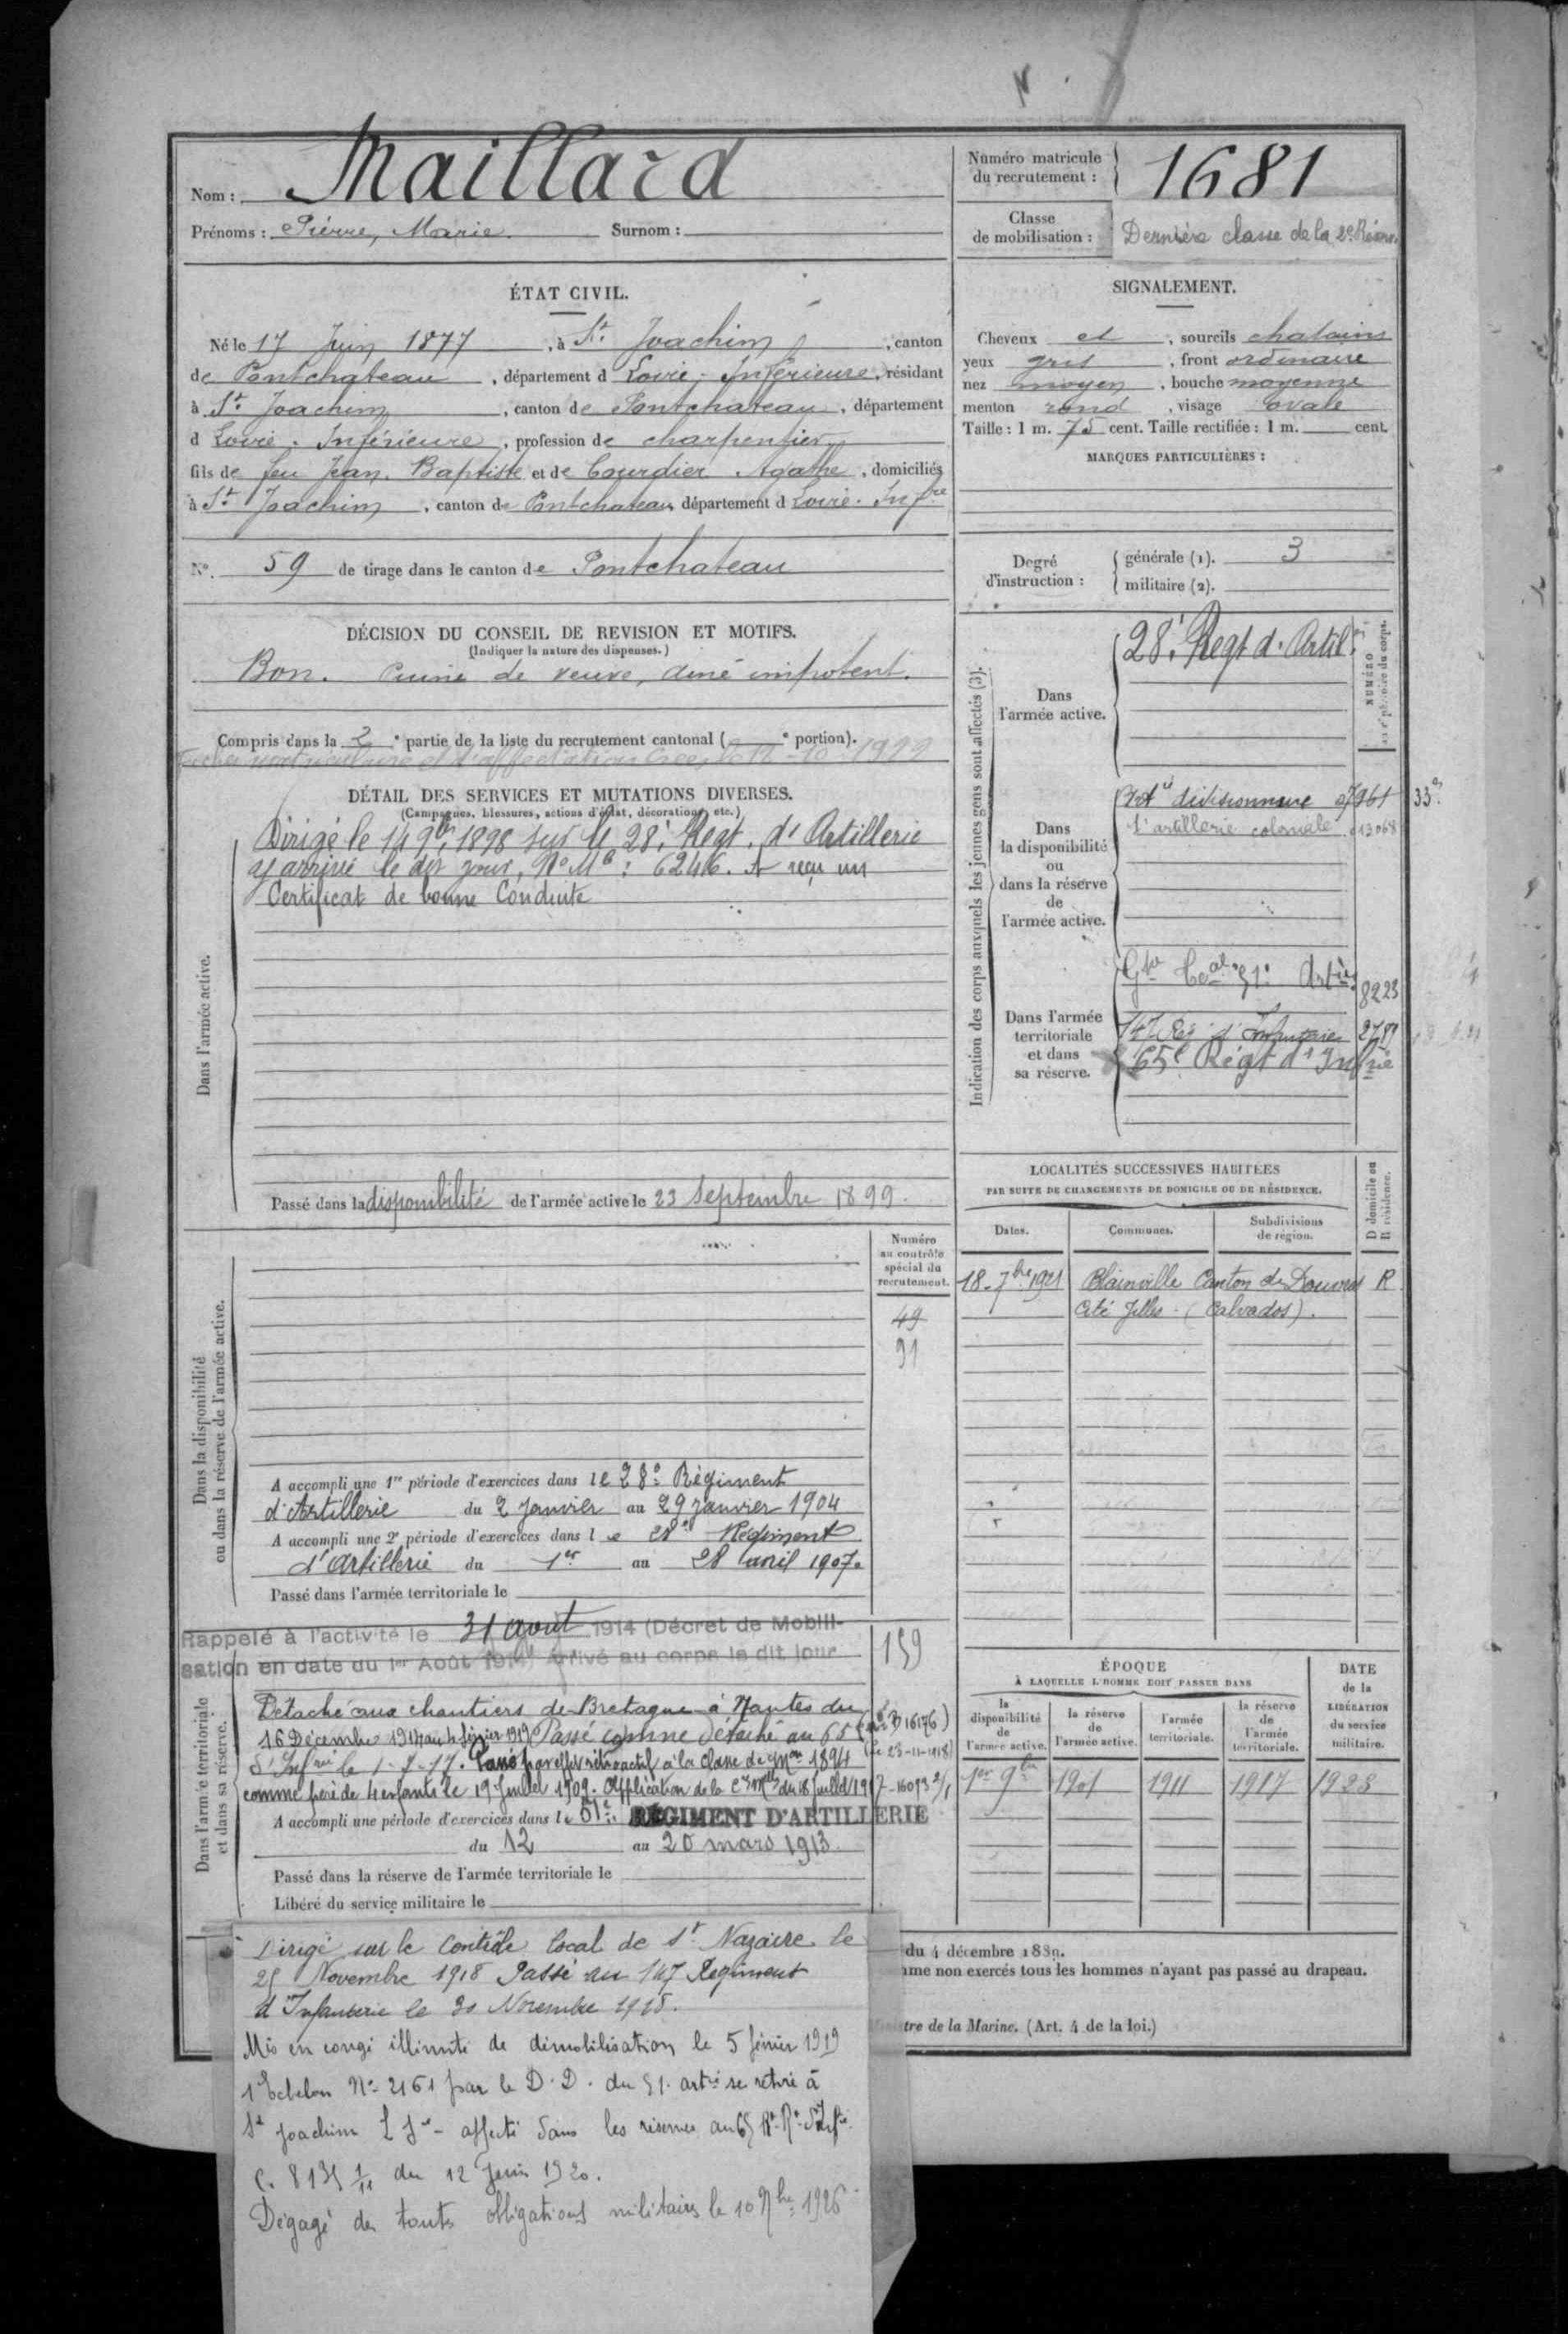 Nom : Maillard
Prénoms : Pierre, Marie Surnom :
Numéro matricule du recrutement : 1681
Classe de mobilisation : Dernière classe de la 2e Réserve
ÉTAT CIVIL.
Né le 17 Juin 1877, à St. Joachim, canton
de Pontchateau, département d Loire-Inférieure, résidant
à St. Joachim, canton de Pontchateau, département
d Loire-Inférieure, profession de charpentier
fils de feu Jean-Baptiste et de Courdier Agathe, domiciliés
à St. Joachim, canton de Pontchateau département d Loire-Infre
No. 59 de tirage dans le canton de Pontchateau
SIGNALEMENT.
Cheveux et, sourcils chatains
yeux gris, front ordinaire
nez moyen, bouche moyenne
menton rond, visage ovale
Taille : 1 m. 75 cent. Taille rectifiée : 1 m. cent.
MARQUES PARTICULIÈRES :
Degré d'instruction : générale (1). 3
militaire (2).
DÉCISION DU CONSEIL DE REVISION ET MOTIFS.
(Indiquer la nature des dispenses.)
Bon. de veuve, ainé impotent.
Compris dans la 2e partie de la liste du recrutement cantonal ( e portion).
DÉTAIL DES SERVICES ET MUTATIONS DIVERSES.
(Campagnes, blessures, actions d'éclat, décorations, etc.)
Dans l'armée active.
Dirigé le 14 9bre 1898 sur le 28e Regt. d'Artillerie
y arrivé le dit jour, No Mle : 6246. A reçu un
Certificat de bonne Conduite
Passé dans la disponibilité de l'armée active le 23 Septembre 1899.
Indication des corps auxquels les jeunes gens sont affectés (3).
NUMÉRO
au répertoire du corps.
Dans l'armée active.
28e Regt d'Artil.
Dans la disponibilité ou dans la réserve de l'armée active.
divisionnaire 33e
L'artillerie coloniale 13068
Dans l'armée territoriale et dans sa réserve.
51e Artie 8223
147 Rég d'Infanterie 2781
65e Régt d'Infrie
LOCALITÉS SUCCESSIVES HABITÉES
PAR SUITE DE CHANGEMENTS DE DOMICILE OU DE RÉSIDENCE.
Dates. Communes. Subdivisions de région. D domicile ou R résidence.
18-7bre 1921 Blainville Canton de Douvres R
Cité (Calvados).
Dans la disponibilité ou dans la réserve de l'armée active.
Numéro au contrôle spécial du recrutement.
49
91
A accompli une 1re période d'exercices dans le 28e Régiment
d'Artillerie du 2 Janvier au 29 janvier 1904
A accompli une 2e période d'exercices dans le 28e Régiment
d'Artillerie du 1er au 28 avril 1907.
Passé dans l'armée territoriale le
Dans l'armée territoriale et dans sa réserve.
Rappelé à l'activité le 31 août 1914 (Décret de Mobili-
sation en date du 1er Août 1914) Arrivé au corps le dit jour
159
Détaché aux chantiers de Bretagne à Nantes du
16 Décembre 1914 au 4 février 1919 Passé comme détaché au 65e
d'Infrie le 1-7-17. Passé par effet rétroactif à la classe de Mon 1894
comme père de 4 enfants le 19 Juillet 1909. Application de la Cre Mlle du 18 Juillet 1917-16093 2/1
(le 23-11-1918)
A accompli une période d'exercices dans le 51e RÉGIMENT D'ARTILLERIE
du 12 au 20 mars 1913.
Passé dans la réserve de l'armée territoriale le
Libéré du service militaire le
ÉPOQUE
À LAQUELLE L'HOMME DOIT PASSER DANS
la disponibilité de l'armée active. la réserve de l'armée active. l'armée territoriale. la réserve de l'armée territoriale.
DATE de la LIBÉRATION du service militaire.
1er 9bre 1901 1911 1917 1923
du 4 décembre 1889.
me non exercés tous les hommes n'ayant pas passé au drapeau.
tre de la Marine. (Art. 4 de la loi.)
Dirigé sur le Contrôle local de St Nazaire le
25 Novembre 1918 Passé au 147 Regiment
d'Infanterie le 30 Novembre 1918.
Mis en congé illimité de démobilisation le 5 février 1919
1e Echelon No 2161 par le D.D. du 51e artie se retire à
St Joachim L Ire - affecté dans les réserves au 65
C. 8135 1/11 du 12 Juin 1920.
Dégagé de toutes obligations militaires le 10 9bre 1926